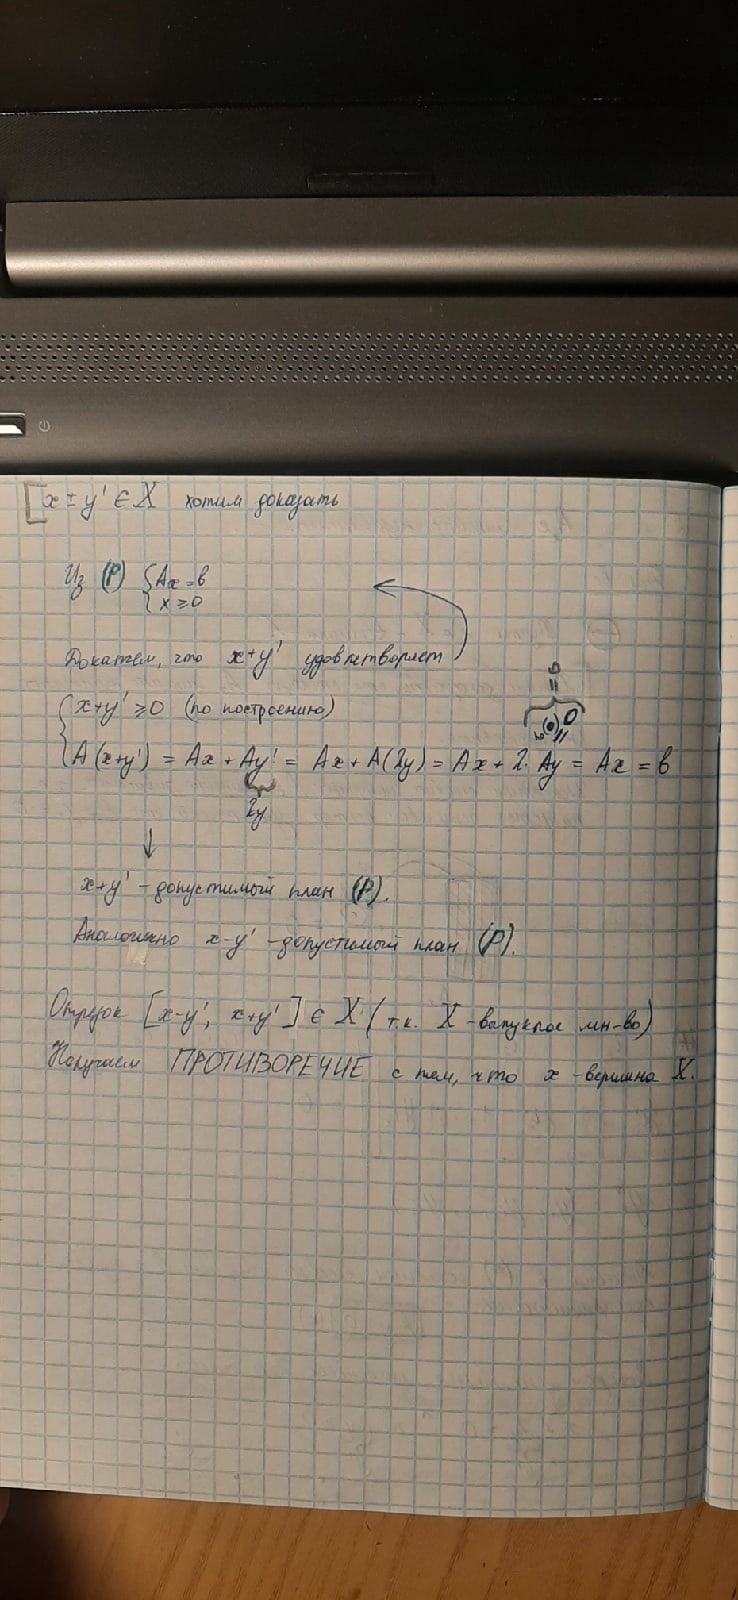 [x ± y' ∈ X хотим доказать
Из (P) { Ax = b
x ≥ 0
Докажем, что x+y' удовлетворяет
{ x+y' ≥ 0 (по построению)
= 0
A(x+y') = Ax + Ay' = Ax + A(2y) = Ax + 2· Ay = Ax = b
2y
↓
x+y' - допустимый план (P).
Аналогично x-y' - допустимый план (P).
Отрезок [x-y', x+y'] ∈ X (т.к. X - выпуклое мн-во)
Получаем ПРОТИВОРЕЧИЕ с тем, что x - вершина X.